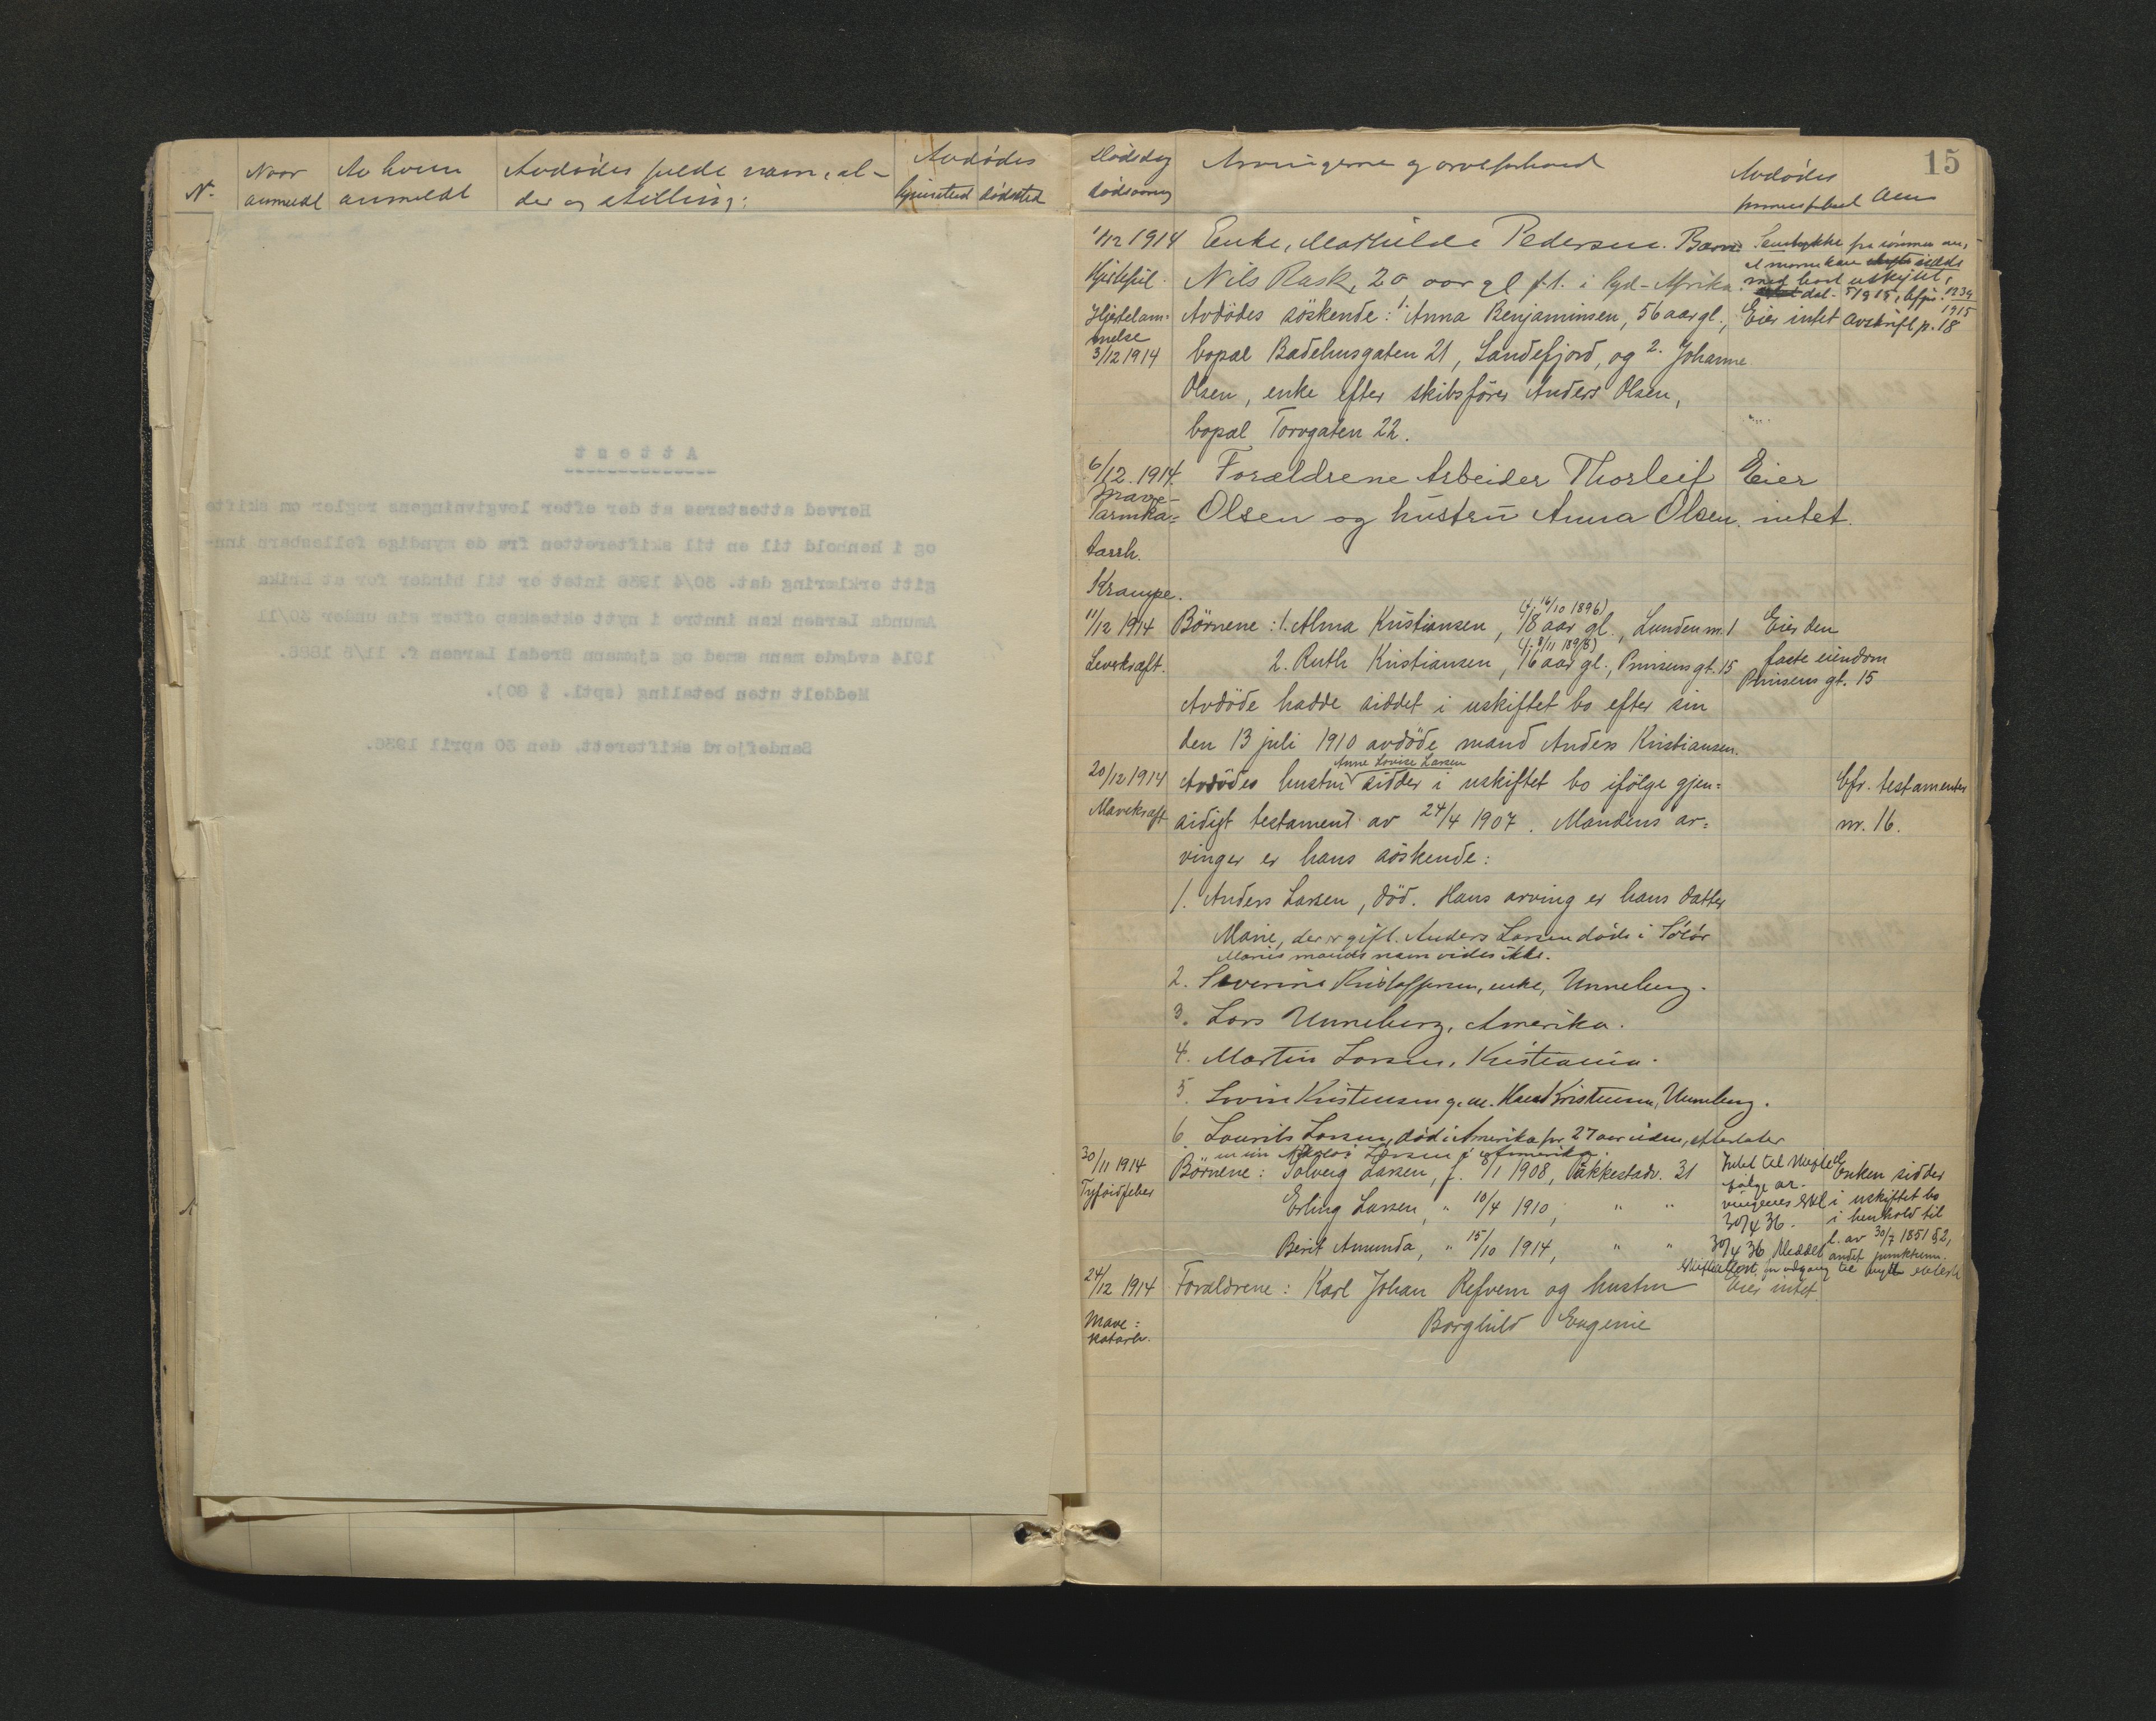 N.
Naar anmeldt
Av hvem anmeldt
Avdødes fulde navn, al-
der og stilling:
Avdødes
hjemsted dødssted
Attest
Herved attesteres at der efter lovgivningens regler om skifte
og i henhold til en til skifteretten fra de myndige fellesbarn inn-
gitt erklæring dat. 30/4 1936 intet er til hinder for at enke
Amunda Larsen kan inntre i nytt ekteskap efter sin under 30/11
1914 avdøde mann smed og sjømann Bredal Larsen f. 11/6
Meddelt uten betaling (sptl. § 80).
Sandefjord skifterett, den 30 april 1936.
15
Dødsdag
dødsaarsag
Arvingerne og arveforhold
Avdødes
formuesforhold Anm
1/12 1914 Enke, Mathilde Pedersen. Barn:
Samtykke fra sønnen om,
at moren kan sidde
Hjertefeil. Nils Rask, 20 aar gl p.t. i Syd-Afrika.
med boet uskiftet,
dat. 5/9 15, cfr. 1239/1915
Hjertelam-
melse
3/12 1914
Avdødes søskende: 1. Anna Benjaminsen, 56 aar gl., Eier intet Avskrift p. 18
bopæl Badehusgaten 21, Sandefjord, og 2. Johanne
Olsen, enke efter skibsfører Anders Olsen,
bopæl Torvgaten 22.
6/12 1914. Forældrene Arbeider Thorleif Eier
Mave-
Tarmka- Olsen og hustru Anna Olsen. intet.
tarrh.
Krampe.
(f. 16/10 1896)
11/12 1914 Børnene: 1. Alma Kristiansen, 18 aar gl., Lunden m. 1 Eier den
(f. 8/11 1898)
Leverkræft. 2. Ruth Kristiansen, 16 aar gl., Prinsens gt. 15 faste eiendom
Prinsens gt. 15
Avdøde hadde siddet i uskiftet bo efter sin
den 13 juli 1910 avdøde mand Anders Kristiansen.
Anne Lovise Larsen
20/12 1914 Avdødes hustru sidder i uskiftet bo ifølge gjen- Cfr. testamenter
Mavekræft sidigt testament av 24/4 1907. Mandens ar- nr. 16.
vinger er hans søskende:
1. Anders Larsen, død. Hans arving er hans datter
Marie, der er gift. Anders Larsen døde i Solør
Maries mands navn vides ikke.
2. Severine Kristoffersen, enke, Unneberg.
3. Lars Unneberg, Amerika.
4. Martin Larsen, Kristiania.
5. Lovise Kristensen g. m. Hans Kristensen, Unneberg.
6. Laurits Larsen, død i Amerika for 27 aar siden, efterlater
en søn Larsen i Amerika.
30/11 1914 Børnene: Solveig Larsen, f. 8/1 1908, Pukkestadv. 31
Tyfoidfeber Erling Larsen, " 10/4 1910, " "
Berit Amunda, " 15/10 1914, " "
ifølge ar-
vingenes erkl
30/4 36.
30/4 36 Meddelt
skifteattest for adgang til nytt ektesk
Enken sidder
i uskiftet bo
i henhold til
l. av 30/7 1851 § 2,
andet punktum.
24/12 1914 Forældrene: Karl Johan Refvem og hustru Eier intet.
Mave-
katarh. Borghild Eugenie